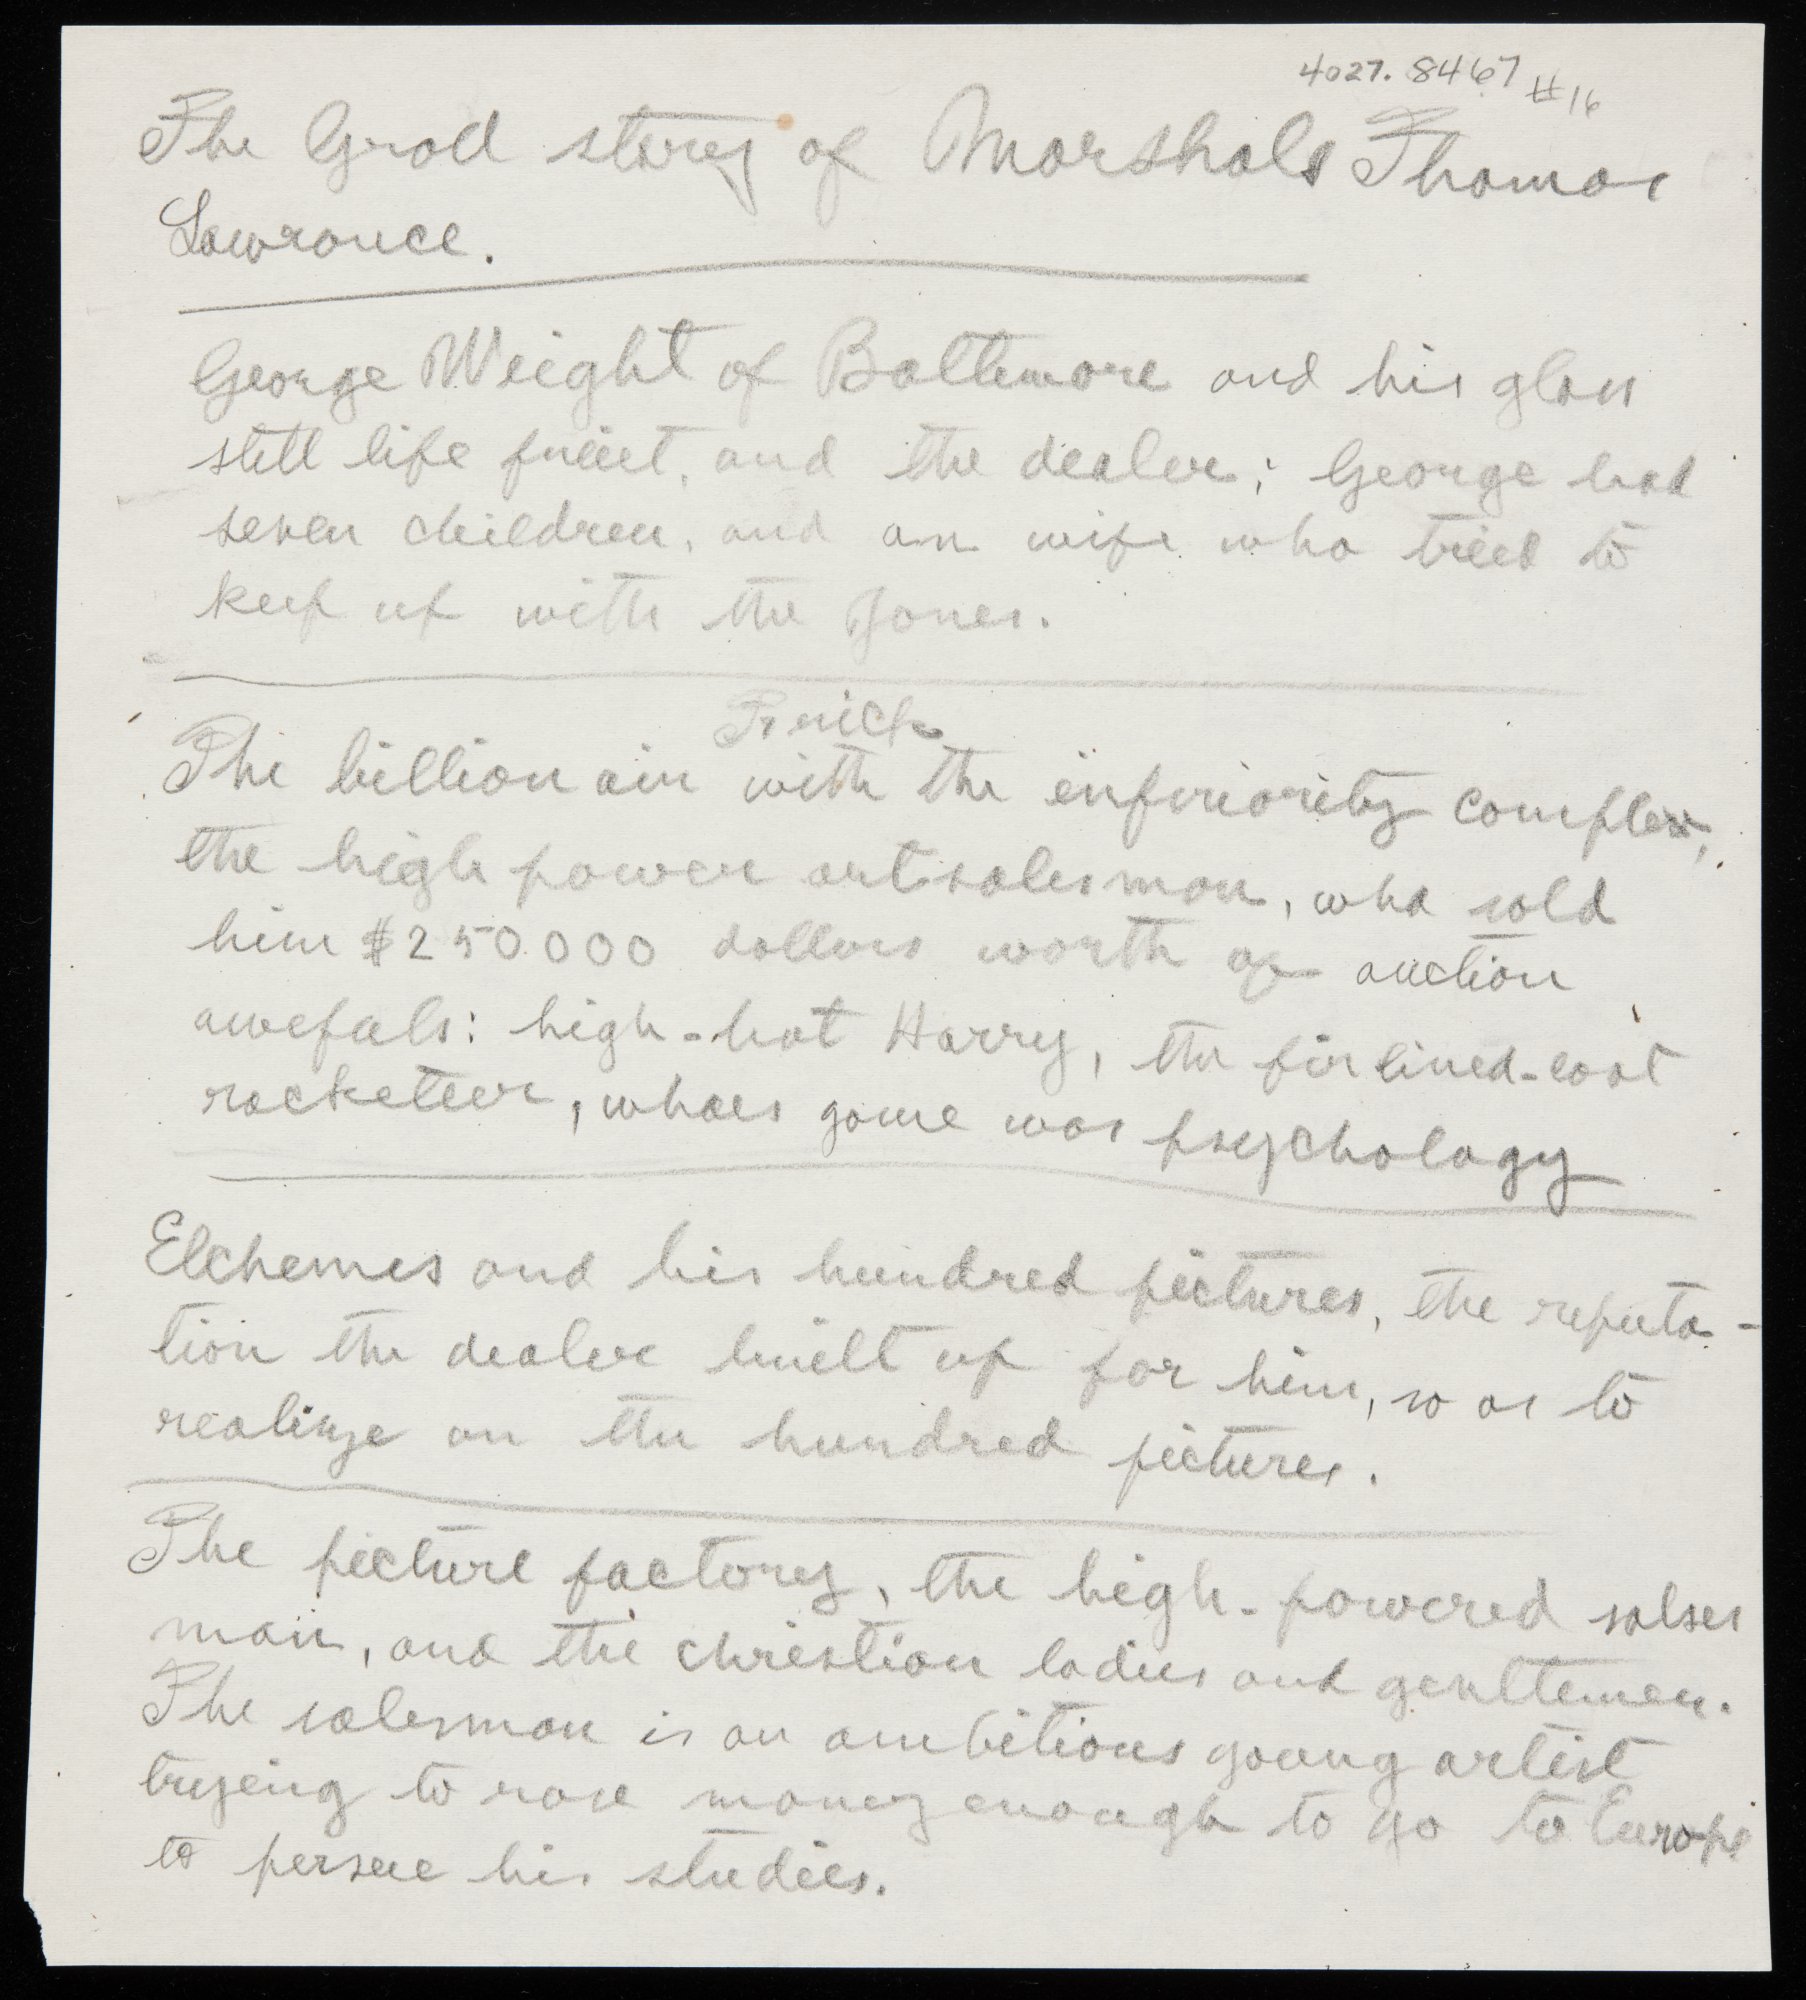 4027.8467 #16
The Grad story of Marshals Thomas
Lawrance.
George Weight of Baltemore and his glass
still life and the dealer; George had
seven children, and an wife who tried to
keep up with the Jones.
The billion air with the inforiority complex,
the high power art salesman, who sold
him $250.000 dollars worth of auction
awefuls: high-hat Harry, the fir lined-coat
racketeer, whoes game was psychology
Elchemes and his hundred pictures, the reputa-
tion the dealer built up for him, so as to
realinze on the hundred pictures.
The picture factory, the high-powered salses
man, and the christian ladies and genltemen.
The salesman is an ambitious young artist
trying to rase money enough to go to Europe
to persue his studies.